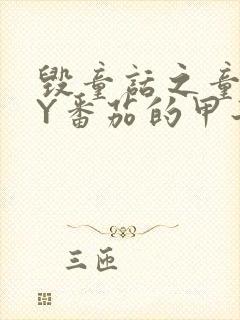 毁童话之童
Y番茄的甲
三匝